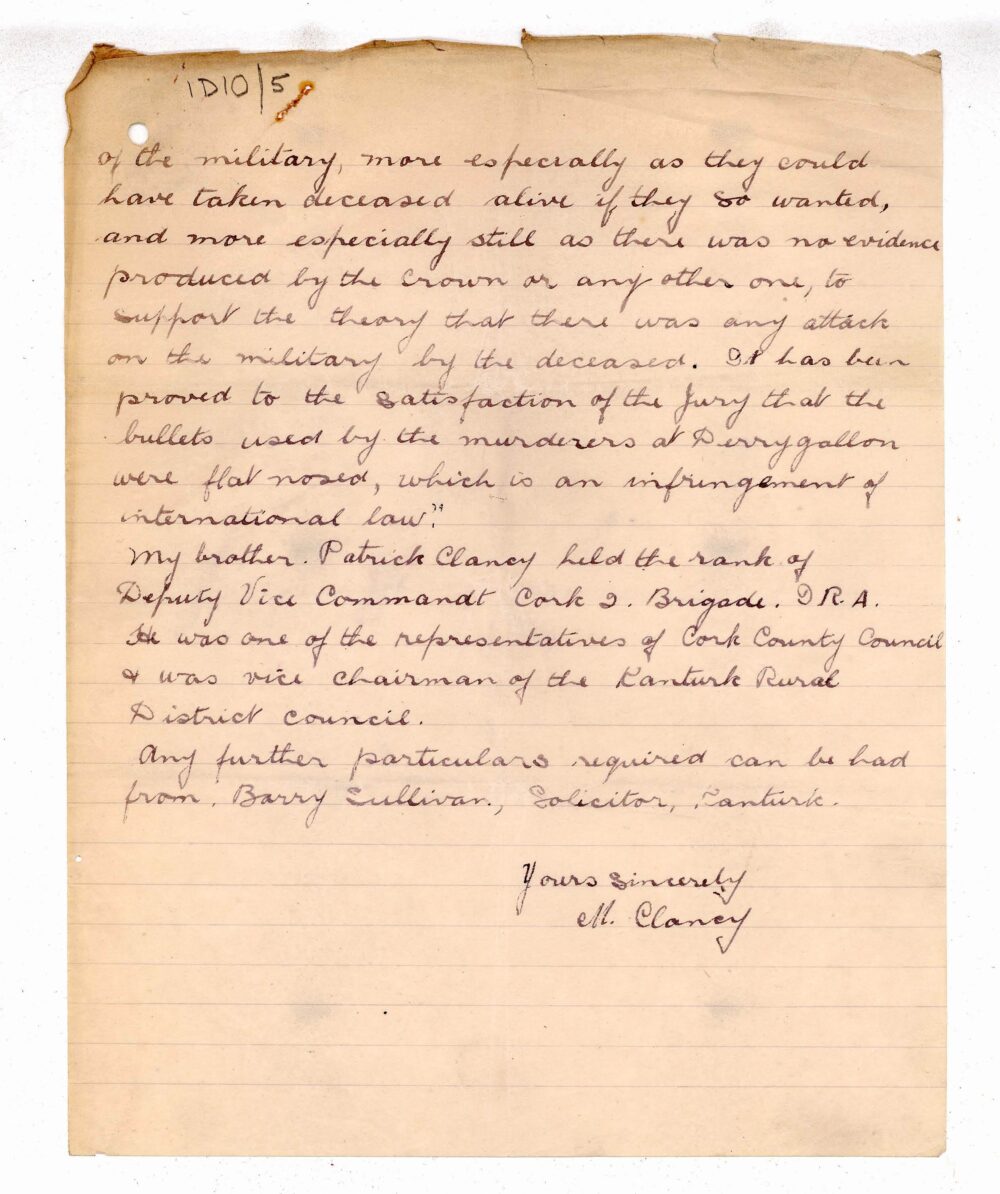 1D10/5
of the military, more especially as they could
have taken deceased alive if they so wanted,
and more especially still as there was no evidence
produced by the Crown or any other one, to
support the theory that there was any attack
on the military by the deceased. It has been
proved to the satisfaction of the Jury that the
bullets used by the murderers at Derrygallon
were flat nosed, which is an infringement of
international law."
My brother. Patrick Clancy held the rank of
Deputy Vice Commandt Cork 2. Brigade. I R. A.
He was one of the representatives of Cork County Council
& was vice chairman of the Kanturk Rural
District council.
Any further particulars required can be had
from. Barry Sullivan., Solicitor, Kanturk.
Yours sincerely
M. Clancy